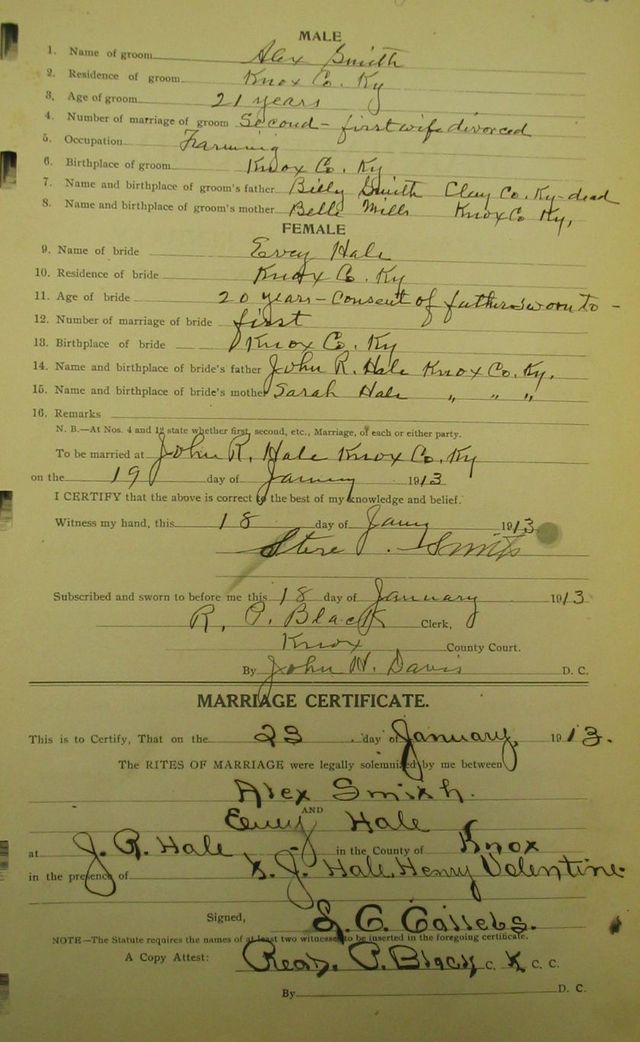 MALE
1. Name of groom Alex Smith
2. Residence of groom Knox Co. Ky
3. Age of groom 21 years
4. Number of marriage of groom Second - first wife divorced
5. Occupation Farming
6. Birthplace of groom Knox Co. Ky
7. Name and birthplace of groom's father Billy Smith Clay Co. Ky - dead
8. Name and birthplace of groom's mother Belle Mills Knox Co Ky,
FEMALE
9. Name of bride Evey Hale
10. Residence of bride Knox Co. Ky
11. Age of bride 20 years - Consent of father sworn to -
12. Number of marriage of bride first
13. Birthplace of bride Knox Co. Ky
14. Name and birthplace of bride's father John R. Hale Knox Co. Ky,
15. Name and birthplace of bride's mother Sarah Hale " " "
16. Remarks
N. B.—At Nos. 4 and 12 state whether first, second, etc., Marriage, of each or either party.
To be married at John R. Hale Knox Co. Ky
on the 19 day of January 1913
I CERTIFY that the above is correct to the best of my knowledge and belief.
Witness my hand, this 18 day of Jany 1913
Smith
Subscribed and sworn to before me this 18 day of January 1913
R. P. Black Clerk,
Knox County Court.
By John H. Davis D. C.
MARRIAGE CERTIFICATE.
This is to Certify, That on the 23 day of January, 1913.
The RITES OF MARRIAGE were legally solemnized by me between
Alex Smith.
AND
Hale
at J. R. Hale in the County of Knox
in the presence of J. Hale, Henry Valentine
Signed,
NOTE—The Statute requires the names of at least two witnesses to be inserted in the foregoing certificate.
A Copy Attest: P. Black C. K C. C.
By D. C.